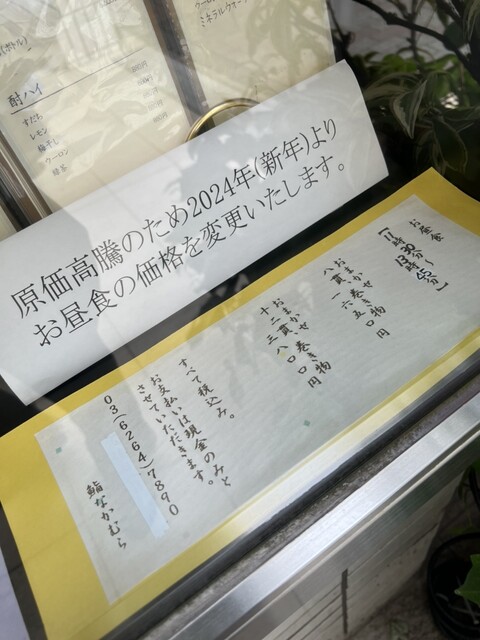 (ボトル)
酎ハイ
すだち
レモン
梅干し
ウーロン
緑茶
ウーロ
ミネラルウォー
原価高騰のため2024年(新年)より
お昼食の価格を変更いたします。
お昼食
【11時30分〜13時45分】
おまかせ巻き物
八貫一六五〇円
おまかせ巻き物
十二貫三八〇〇円
すべて税込み。
お支払いは現金のみと
させていただきます。
03(6264)7890
鮨なかむら